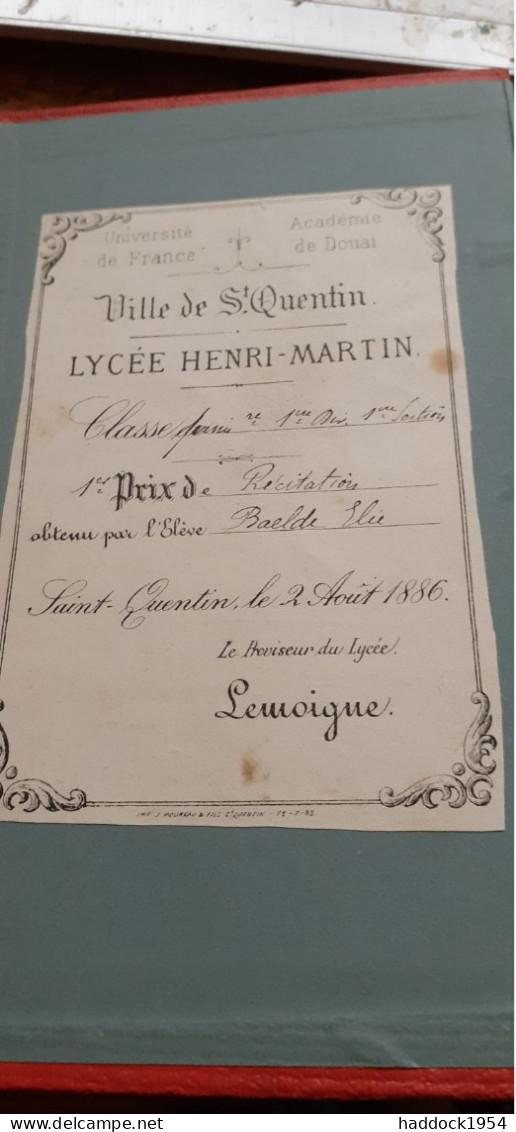 Université
de France
Académie
de Douai
Ville de St. Quentin.
LYCÉE HENRI-MARTIN.
Classe 1re Div. 1re Section
1er Prix de Récitation
obtenu par l'Elève Baelde Elie
Saint-Quentin, le 2 Août 1886.
Le Proviseur du Lycée.
Lemoigne.
IMP. J. MOUREAU & FILS St QUENTIN - 75-7-85
haddock1954